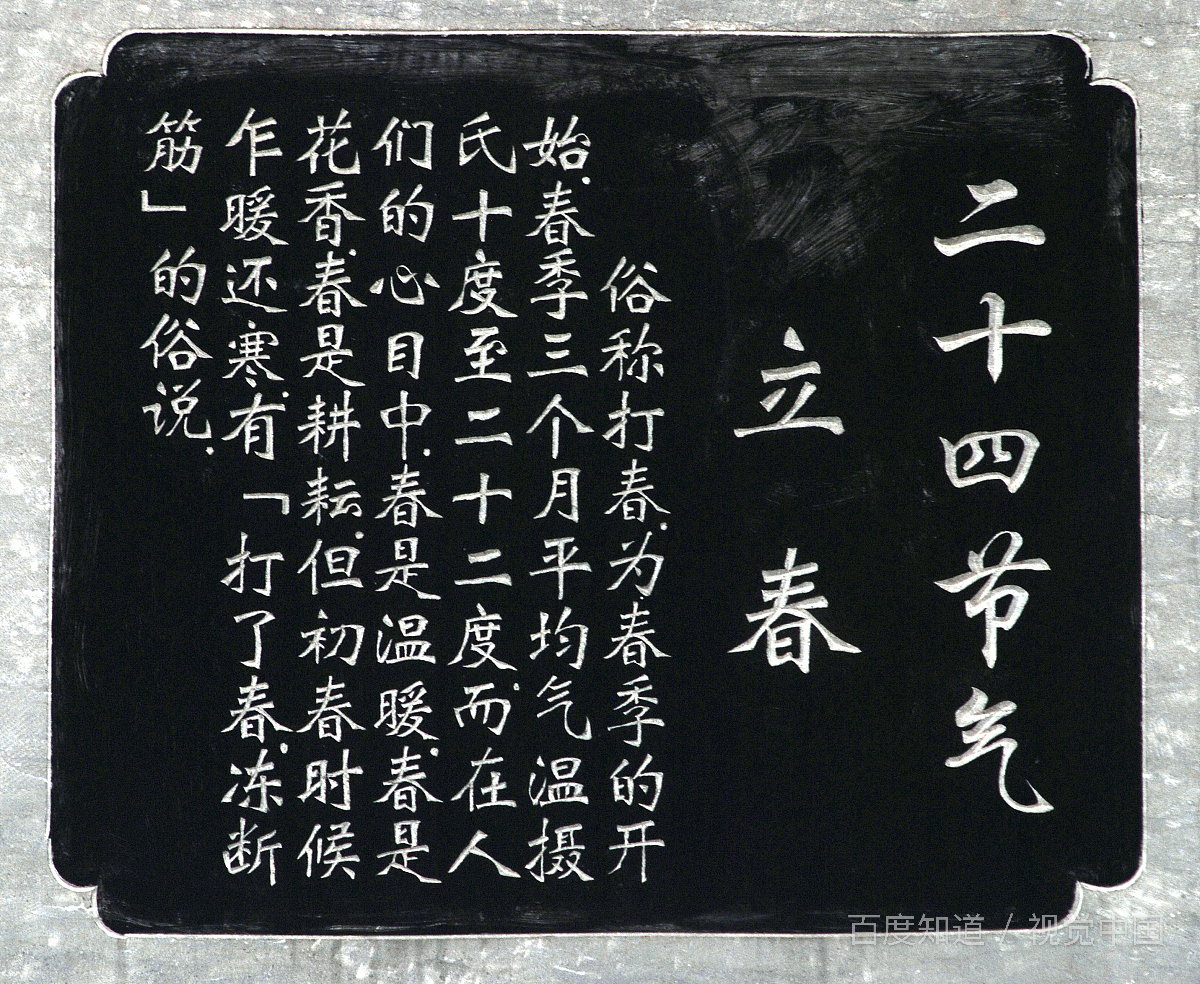 二十四节气
立春
俗称打春.为春季的开
始.春季三个月平均气温摄
氏十度至二十二度.而在人
们的心目中.春是温暖.春是
花香.春是耕耘.但初春时候
乍暖还寒.有「打了春.冻断
筋」的俗说.
百度知道 / 视觉中国